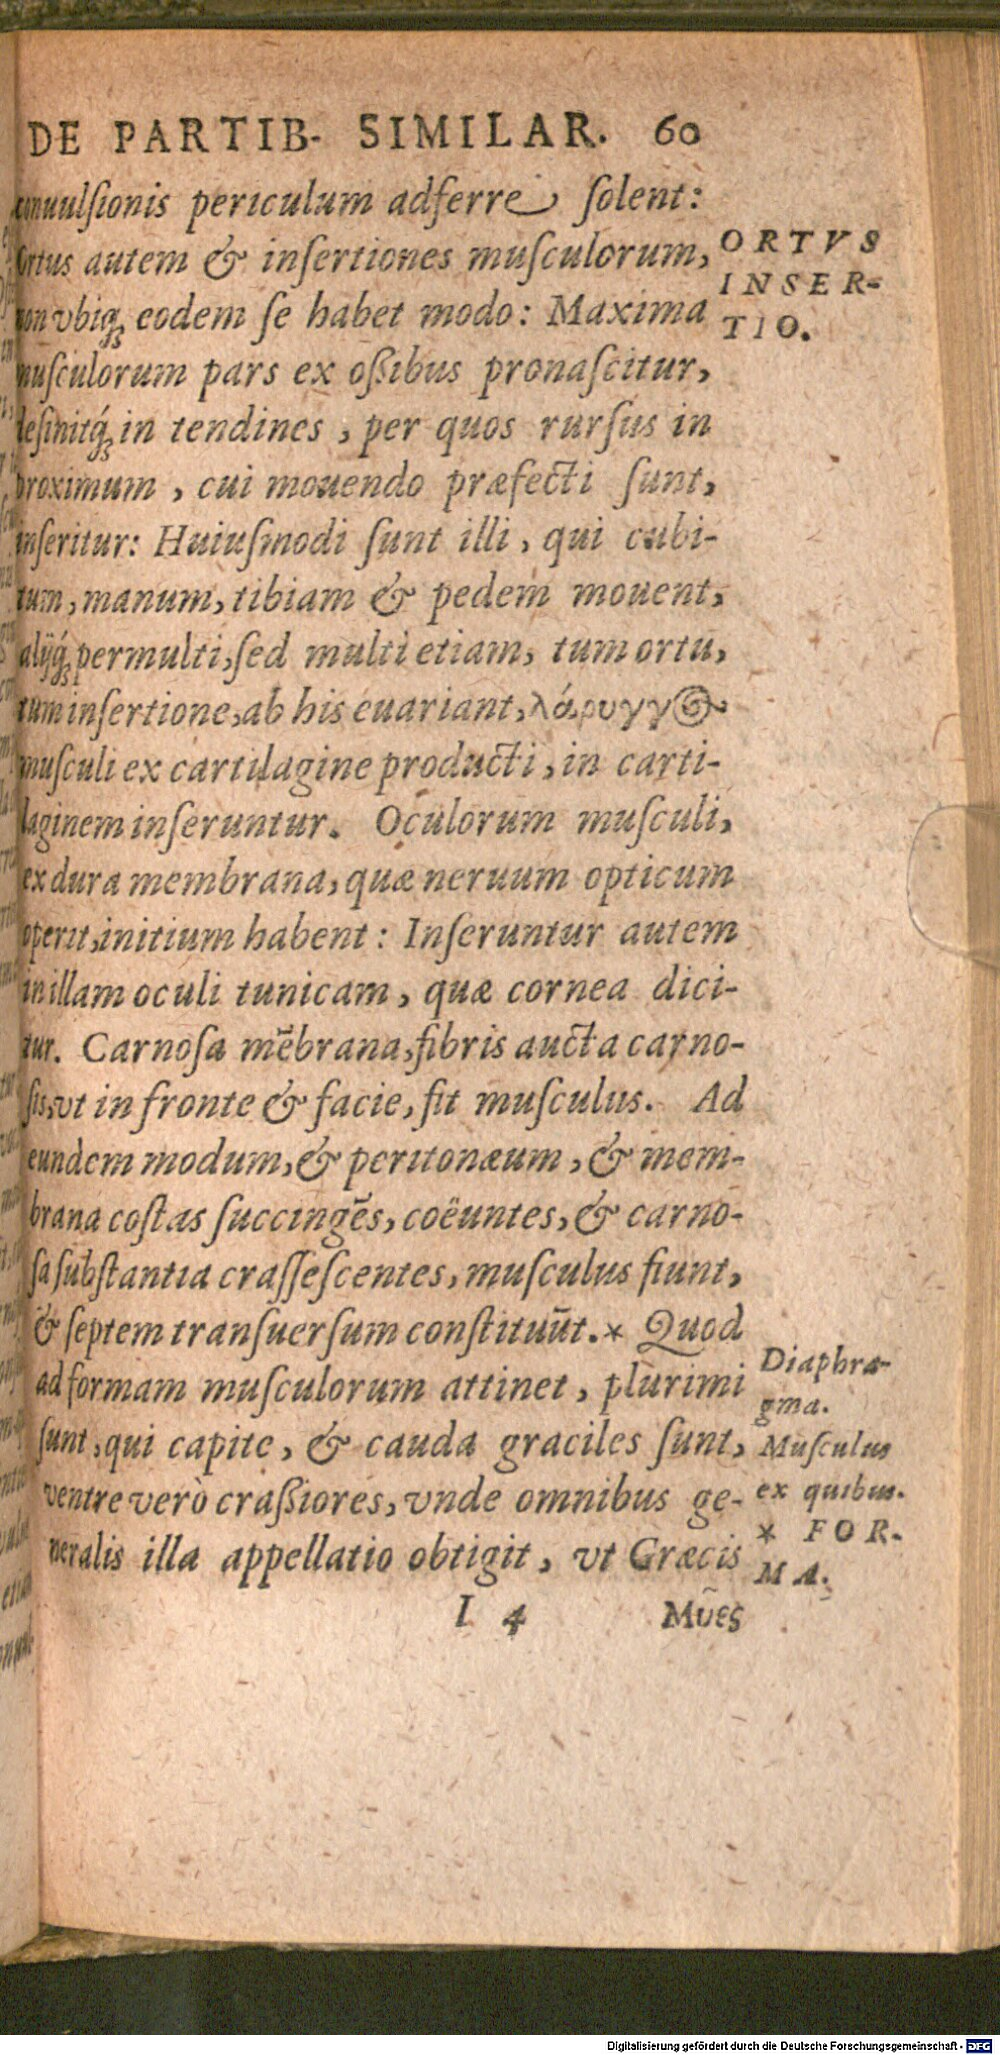 DE PARTIB. SIMILAR. 60
conuulſionis periculum adferre ſolent:
Ortus autem & inſertiones muſculorum,
non vbiq́; eodem ſe habet modo: Maxima
muſculorum pars ex oßibus pronaſcitur,
deſinitq́; in tendines, per quos rurſus in
proximum, cui mouendo præfecti ſunt,
inſeritur: Huiuſmodi ſunt illi, qui cubi-
tum, manum, tibiam & pedem mouent,
alijq́; permulti, ſed multi etiam, tum ortu,
tum inſertione, ab his euariant, λάρυγγος
muſculi ex cartilagine producti, in carti-
laginem inſeruntur. Oculorum muſculi,
ex dura membrana, quæ neruum opticum
operit, initium habent: Inſeruntur autem
in illam oculi tunicam, quæ cornea dici-
tur. Carnoſa mēbrana, fibris aucta carno-
ſis, vt in fronte & facie, fit muſculus. Ad
eundem modum, & peritonæum, & mem-
brana coſtas ſuccingēs, coëuntes, & carno-
ſa ſubſtantia craſſeſcentes, muſculus fiunt,
& ſeptem tranſuerſum conſtituūt.* Quod
ad formam muſculorum attinet, plurimi
ſunt, qui capite, & cauda graciles ſunt,
ventre verò craßiores, vnde omnibus ge-
neralis illa appellatio obtigit, vt Græcis
I 4 Mῦες
ORTVS
INSER-
TIO.
Diaphra-
gma.
Muſculus
ex quibus.
* FOR-
MA.
Digitalisierung gefördert durch die Deutsche Forschungsgemeinschaft - DFG